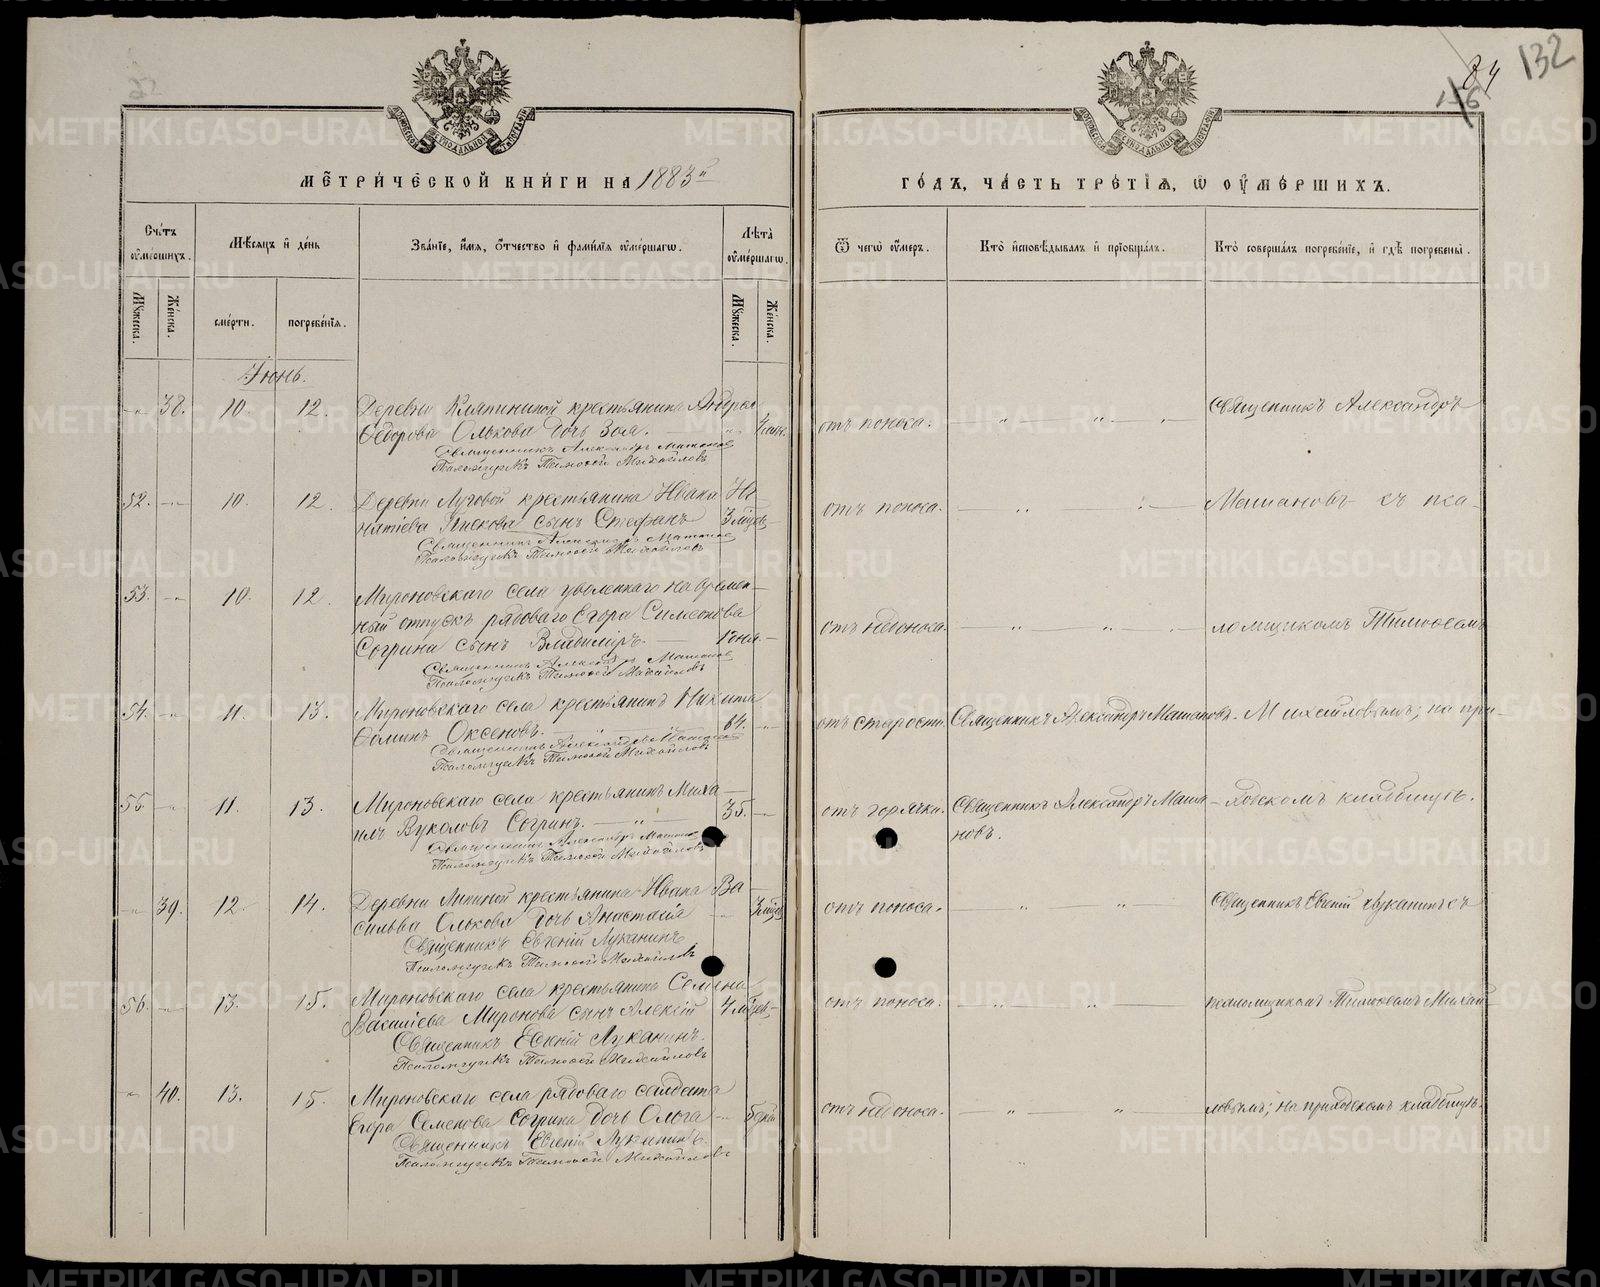 132
84
156
МЕТРИЧЕСКОЙ КНИГИ НА 1883й
ГОДЪ, ЧАСТЬ ТРЕТІЯ, Ѡ ОУМЕРШИХЪ.
Счетъ оумершихъ.
Мѣсяцъ и день
Званіе, имя, отчество и фамилія оумершаго.
Лѣта оумершаго.
Ѿ чегѡ оумеръ.
Кто исповѣдывалъ и пріобщалъ.
Кто совершалъ погребеніе, и гдѣ погребены.
Мужеска.
Женска.
смерти.
погребенія.
Мужеска.
Женска.
Іюнь.
38. 10. 12. Деревни крестьянина Андрея
Ѳедорова Олькова дочь Зоя.
отъ поноса.
Священникъ Александръ
Священникъ Александръ Машановъ
Псаломщикъ Тимоѳей Михайловъ
52. 10. 12. Деревни Луговой крестьянина Ивана Иг-
натіева сынъ Стефанъ 3 мѣсяц.
отъ поноса.
Машановъ съ пса-
Священникъ Александръ Машановъ
Псаломщикъ Тимоѳей Михайловъ
53. 10. 12. Мироновскаго села уволеннаго на времен-
ный отпускъ рядоваго Егора Симеонова
Согрина сынъ Владиміръ.
отъ недоноса.
ломщикомъ Тимоѳеемъ
Священникъ Александръ Машановъ
Псаломщикъ Тимоѳей Михайловъ
54. 11. 13. Мироновскаго села крестьянинъ Никита
Ѳоминъ Оксеновъ. 64.
отъ старости.
Священникъ Александръ Машановъ.
Михайловымъ; на при-
Священникъ Александръ Машановъ
Псаломщикъ Тимоѳей Михайловъ
55. 11. 13. Мироновскаго села крестьянинъ Миха-
илъ Вуколовъ Согринъ. 35.
отъ горячки.
Священникъ Александръ Маша-
новъ.
ходскомъ кладбищѣ.
Священникъ Александръ Машановъ
Псаломщикъ Тимоѳей Михайловъ
39. 12. 14. Деревни Липиной крестьянина Ивана Ва-
сильева Олькова дочь Анастасія 3 мѣсяц
отъ поноса.
Священникъ Евгеній Луканинъ съ
Священникъ Евгеній Луканинъ
Псаломщикъ Тимоѳей Михайловъ
56. 13. 15. Мироновскаго села крестьянина Семена
Василіева Миронова сынъ Алексій 4 мѣсяц.
отъ поноса.
псаломщикомъ Тимоѳеемъ Михай-
Священникъ Евгеній Луканинъ.
Псаломщикъ Тимоѳей Михайловъ
40. 13. 15. Мироновскаго села рядоваго солдата
Егора Семенова Согрина дочь Ольга
отъ недоноса.
ловымъ; на приходскомъ кладбищѣ.
Священникъ Евгеній Луканинъ.
Псаломщикъ Тимоѳей Михайловъ
METRIKI.GASO-URAL.RU